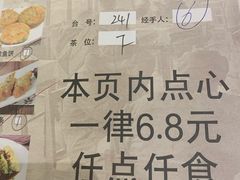 台号: 241 经手人: 6
茶位: 7
鱼饼
本页内点心
一律6.8元
任点任食